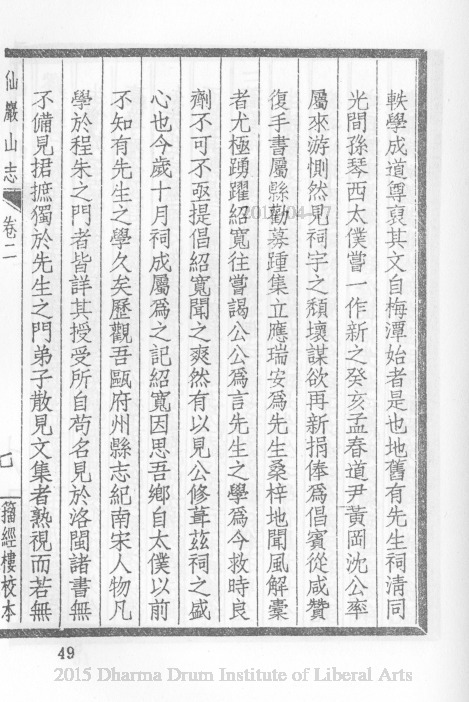 軼學成道尊裒其文自梅潭始者是也地舊有先生祠清同
光間孫琴西太僕嘗一作新之癸亥孟春道尹黃岡沈公率
屬來游惻然見祠宇之頹壞謀欲再新捐俸爲倡賓從咸贊
復手書屬縣勸募踵集立應瑞安爲先生桑梓地聞風解橐
者尤極踴躍紹寬往嘗謁公公爲言先生之學爲今救時良
劑不可不亟提倡紹寬聞之爽然有以見公修葺茲祠之盛
心也今歲十月祠成屬爲之記紹寬因思吾鄉自太僕以前
不知有先生之學久矣歷觀吾甌府州縣志紀南宋人物凡
學於程朱之門者皆詳其授受所自苟名見於洛閩諸書無
不備見捃摭獨於先生之門弟子散見文集者熟視而若無
仙巖山志
卷二
籀經樓校本
49
2015 Dharma Drum Institute of Liberal Arts